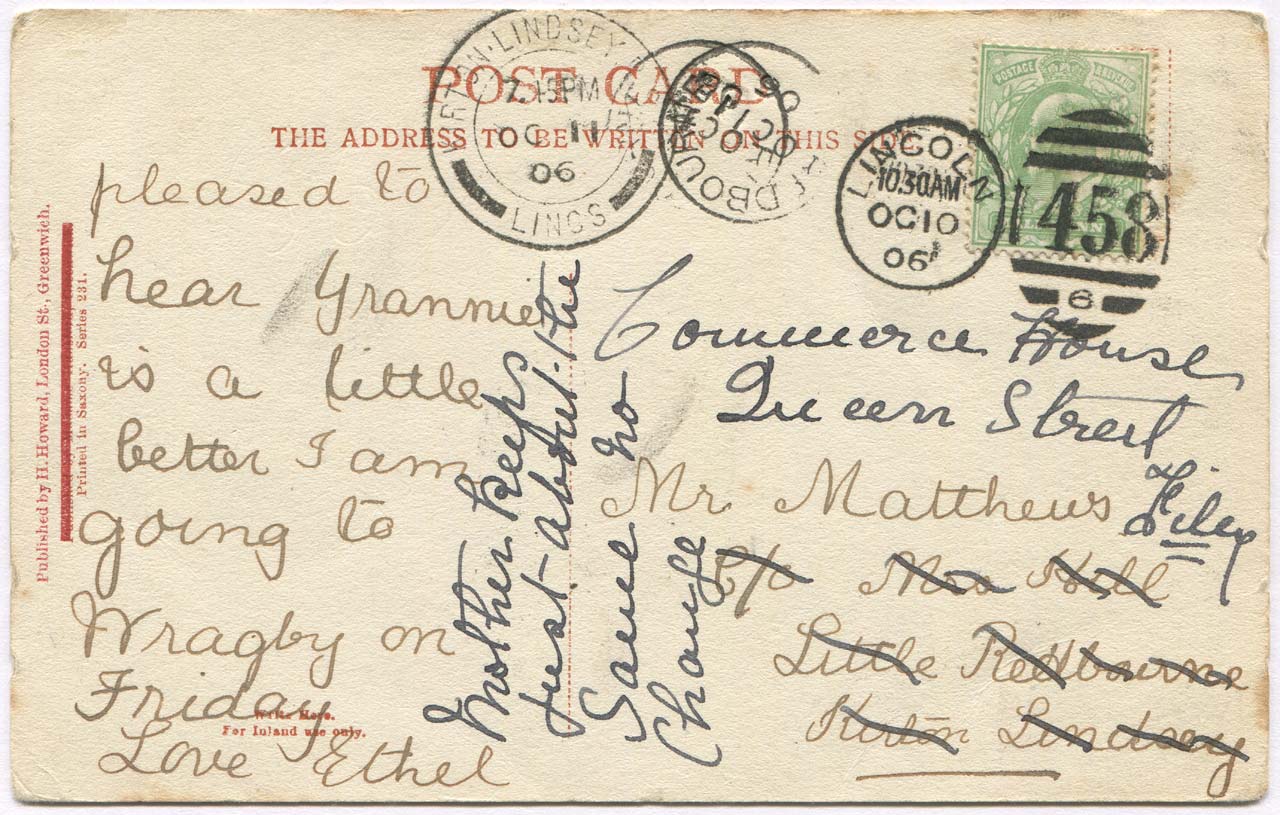 POST CARD
THE ADDRESS TO BE WRITTEN ON THIS SIDE
KIRTON-LINDSEY
7.15PM
OC 11
06
LINGS
OC 11
06
LINCOLN
10.30AM
OC 10
06
POSTAGE
458
6
pleased to
hear Grannie
is a little
better I am
going to
Wragby on
Friday
Love Ethel
Write Here.
For Inland use only.
Mother keeps
just about the
Same no
Change
Commerce House
Queen Street
Filey
Mr Matthews
C/o Mrs Hill
Little Redbourne
Kirton Lindsey
Published by H. Howard, London St., Greenwich.
Printed in Saxony. Series 231.